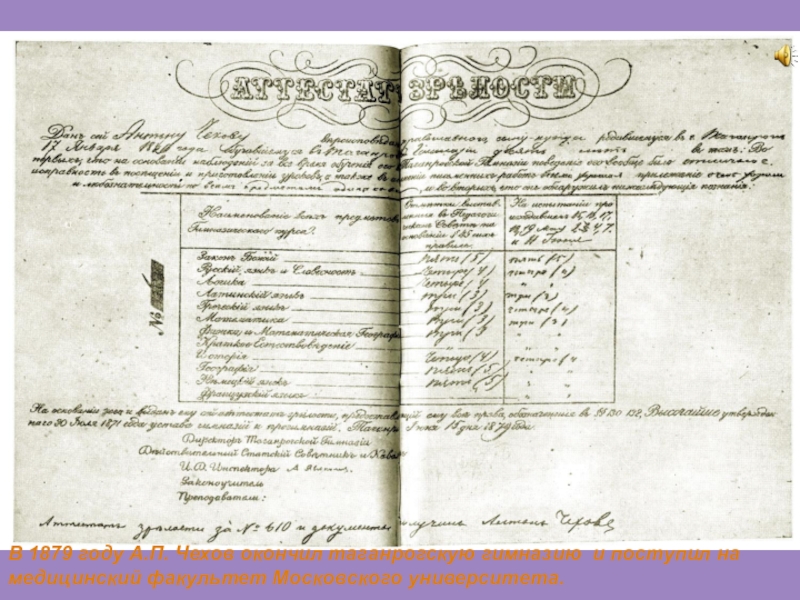 АТТЕСТАТЪ ЗРѢЛОСТИ
Данъ сей Антону Чехову вѣроисповѣданія православнаго, сыну купца, родившемуся въ г. Таганрогѣ
17 Января 1860 года, обучавшемуся въ Таганрогской Гимназіи лѣтъ въ томъ: Во
первыхъ, что на основаніи наблюденій за все время обученія его въ Таганрогской Гимназіи поведеніе его вообще было отличное,
исправность въ посѣщеніи и приготовленіи уроковъ, а также въ исполненіи письменныхъ работъ
и любознательность по всѣмъ предметамъ и во вторыхъ, что онъ обнаружилъ нижеслѣдующія познанія:
Наименованіе всѣхъ предметовъ Гимназическаго курса.
Отмѣтки, выставленныя в Педагогическомъ Совѣтѣ на основаніи § 45 правилъ.
На испытаніи
Законъ Божій пять (5) пять (5)
Русскій языкъ и Словесность четыре (4) четыре (4)
Логика четыре (4) "
Латинскій языкъ три (3) три (3)
Греческій языкъ три (3) четыре (4)
Математика три (3) три (3)
Физика и Математическая Географія три (3) "
Краткое Естествовѣденіе "
Исторія четыре (4) четыре (4)
Географія пять (5) "
Нѣмецкій языкъ пять (5) "
Французскій языкъ
На основаніи чего и выданъ ему сей аттестатъ зрѣлости, предоставляющій ему всѣ права, обозначенные въ §§ 130-132, Высочайше утвержден
наго 30 Іюля 1871 года устава гимназій и прогимназій. Таганрогъ Іюня 15 дня 1879 года.
Директоръ Таганрогской Гимназіи
Дѣйствительный Статскій Совѣтникъ и Кавалеръ
И. Д. Инспектора
Законоучитель
Преподаватели:
Аттестатъ зрѣлости за № 610 и документы получилъ Антонъ Чеховъ
№
В 1879 году А.П. Чехов окончил таганрогскую гимназию и поступил на
медицинский факультет Московского университета.